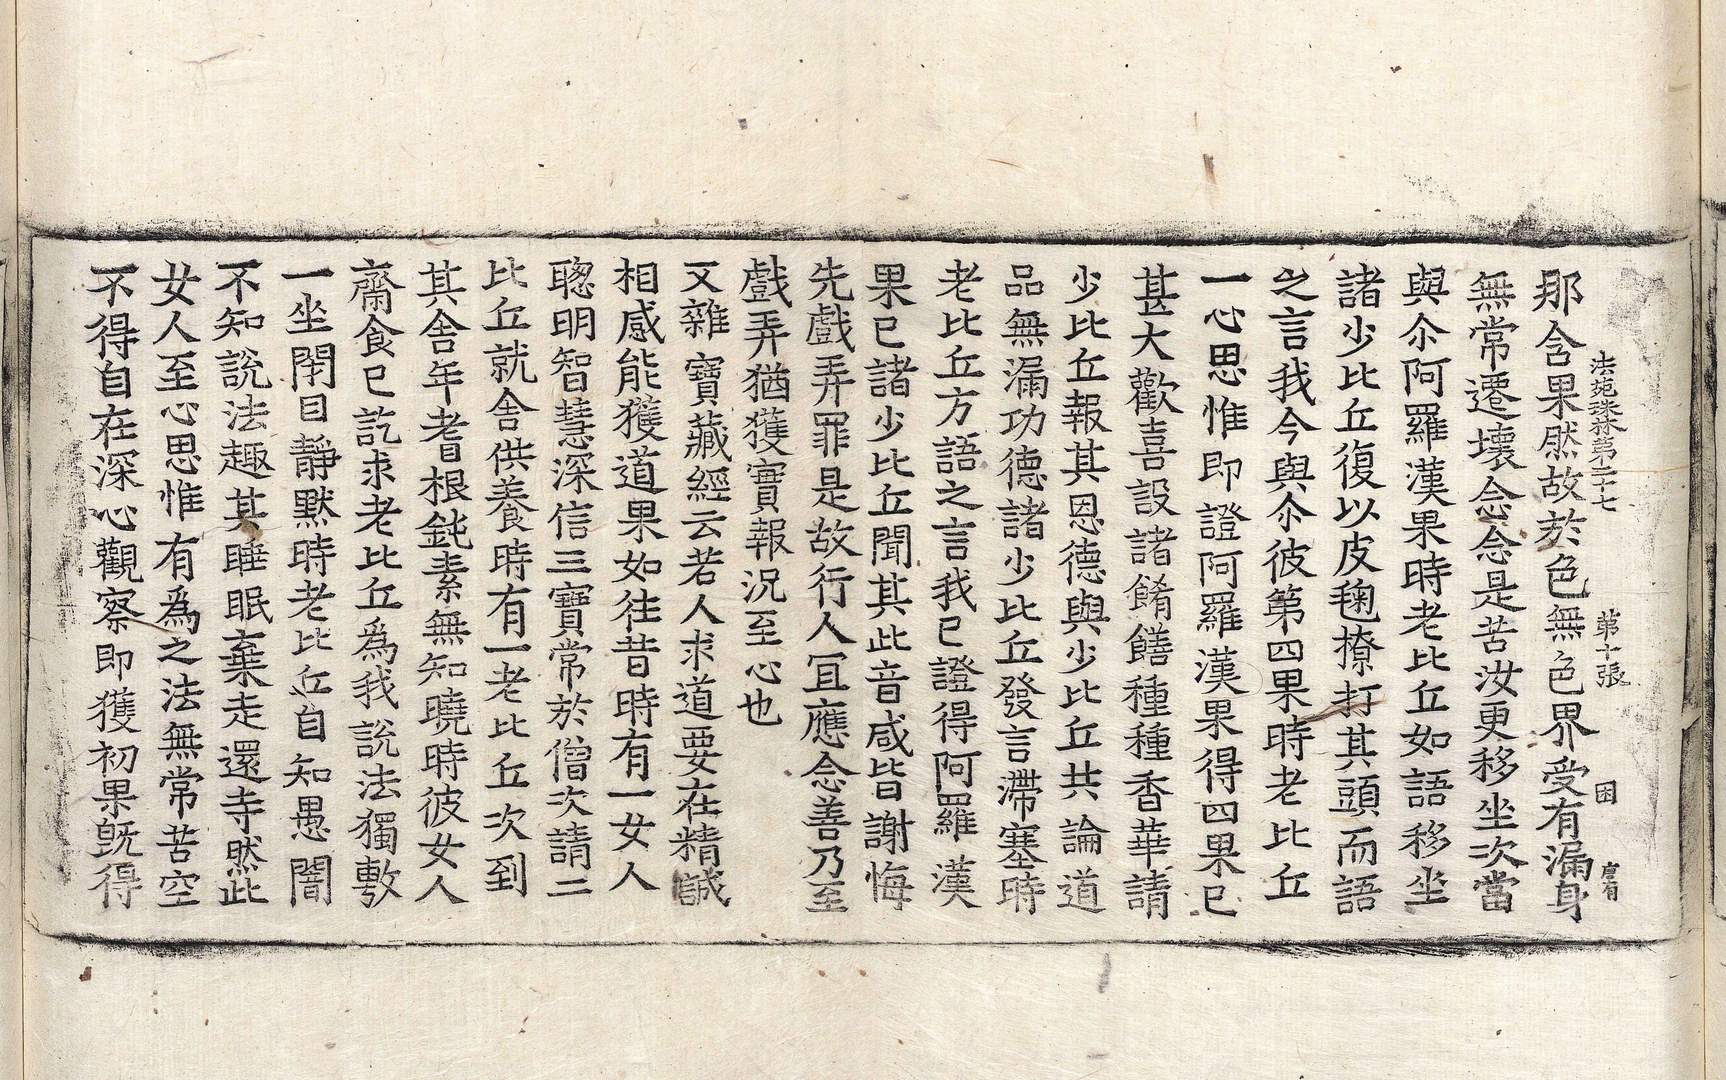 法苑珠林第三十七 第十張 困
那含果然故於色無色界受有漏身
無常遷壞念念是苦汝更移坐次當
與尒阿羅漢果時老比丘如語移坐
諸少比丘復以皮毱撩打其頭而語
之言我今與尒彼第四果時老比丘
一心思惟即證阿羅漢果得四果已
甚大歡喜設諸餚饍種種香華請
少比丘報其恩德與少比丘共論道
品無漏功德諸少比丘發言滯塞時
老比丘方語之言我已證得阿羅漢
果已諸少比丘聞其此音咸皆謝悔
先戲弄罪是故行人冝應念善乃至
戲弄猶獲實報況至心也
又雜寶藏經云若人求道要在精誠
相感能獲道果如往昔時有一女人
聰明智慧深信三寶常於僧次請二
比丘就舍供養時有一老比丘次到
其舍年耆根鈍素無知曉時彼女人
齋食已訖求老比丘爲我說法獨敷
一坐閇目靜默時老比丘自知愚闇
不知說法趣其睡眠棄走還寺然此
女人至心思惟有爲之法無常苦空
不得自在深心觀察即獲初果旣得